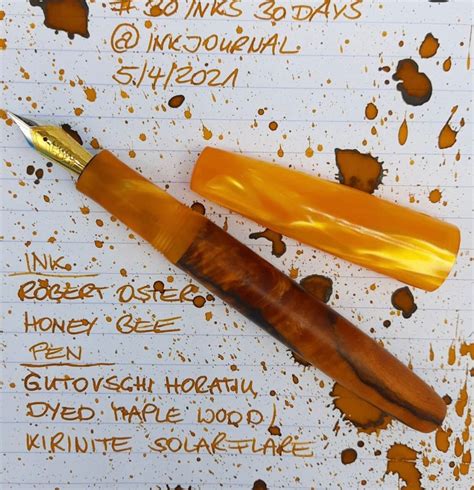 # 30 INKS 30 DAYS
@INKJOURNAL
5/4/2021
INK
ROBERT OSTER
HONEY BEE
PEN
GUTOVSCHI HORATIU
DYED MAPLE WOOD/
KIRINITE SOLARFLARE